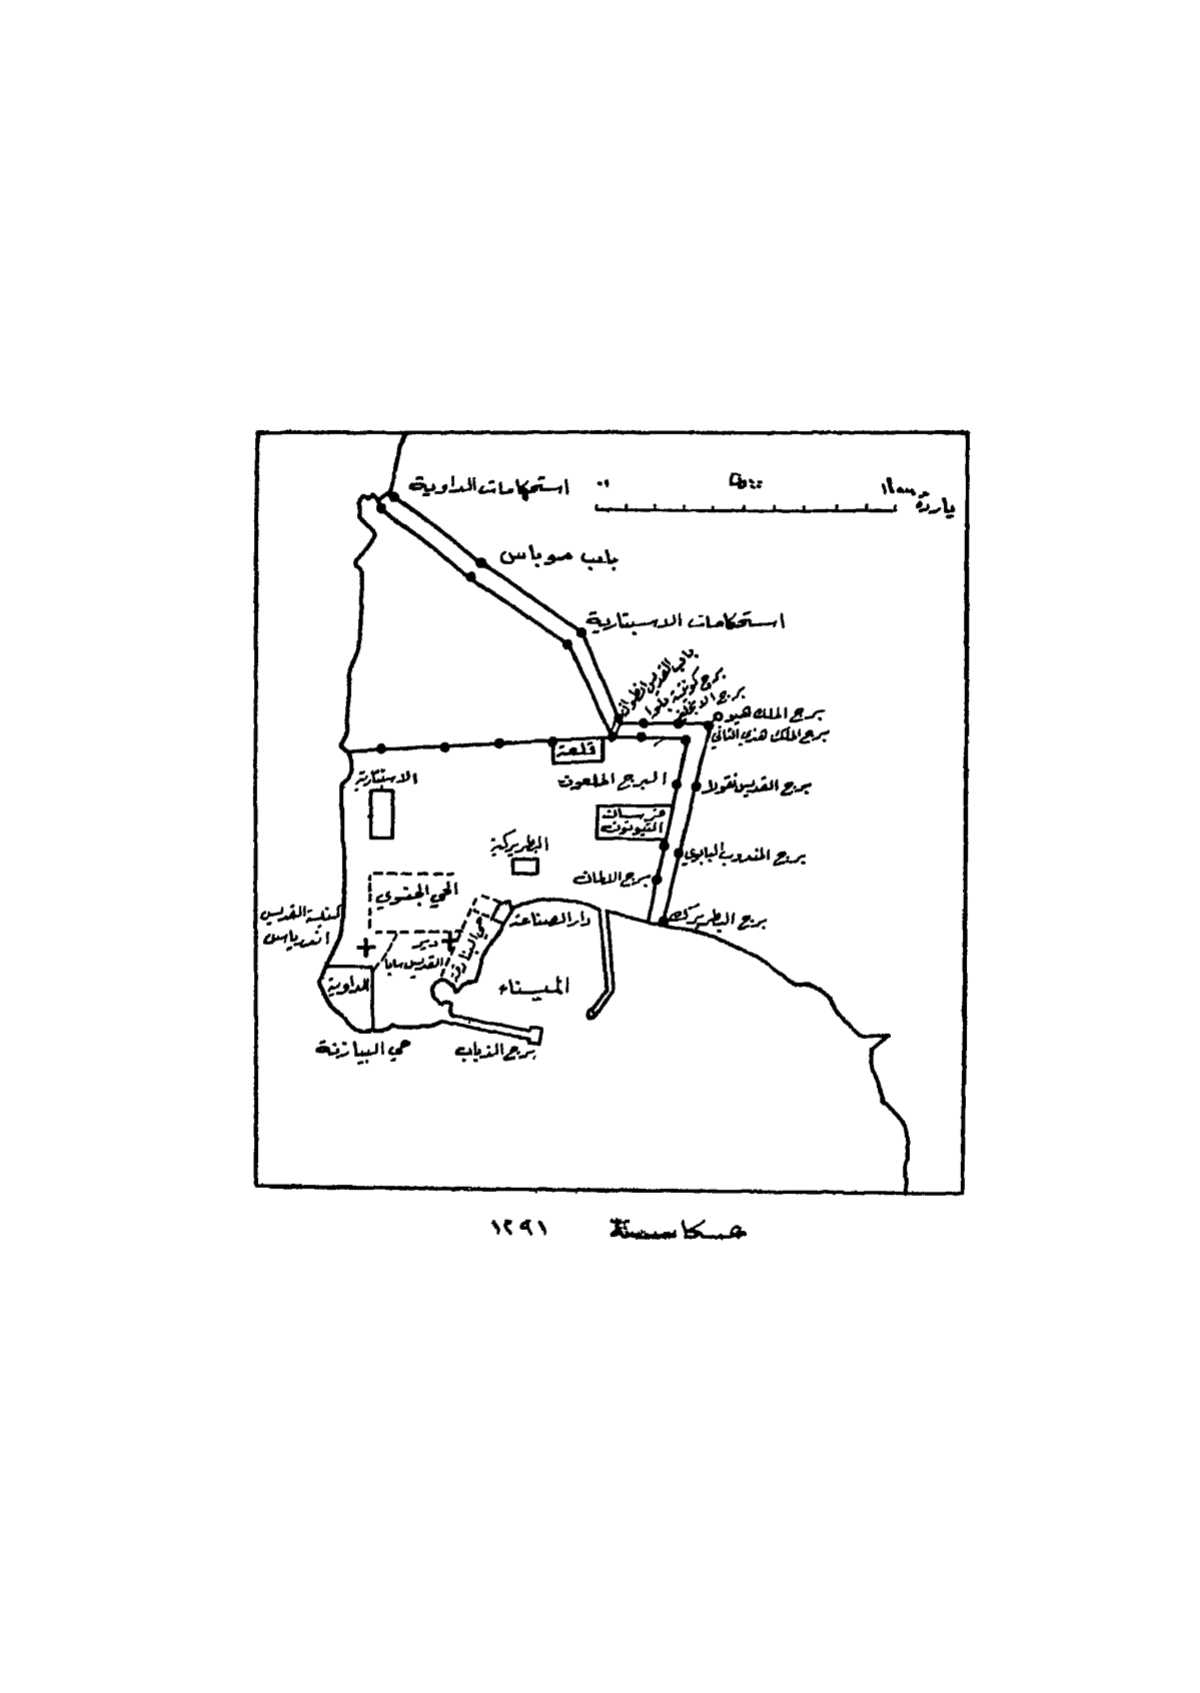 استحكامات الداوية
ياردة
باب صوباس
استحكامات الاسبتارية
باب القديس انطوان
برج كونتيسة بلوا
برج الملك هيو
برج الملك هنري الثاني
قلعة
الاستتارية
البرج الملعون
برج القديس نقولا
فرسان
التيوتون
البطريركية
برج المندوب البابوي
برج الالمان
الحي الجنوي
كنيسة القديس
اندرياس
دار الصناعة
برج البطريرك
دير
القديس سابا
حي البنادقة
الداوية
الميناء
حي البيازنة
برج الذباب
عكا سنة ١٢٩١